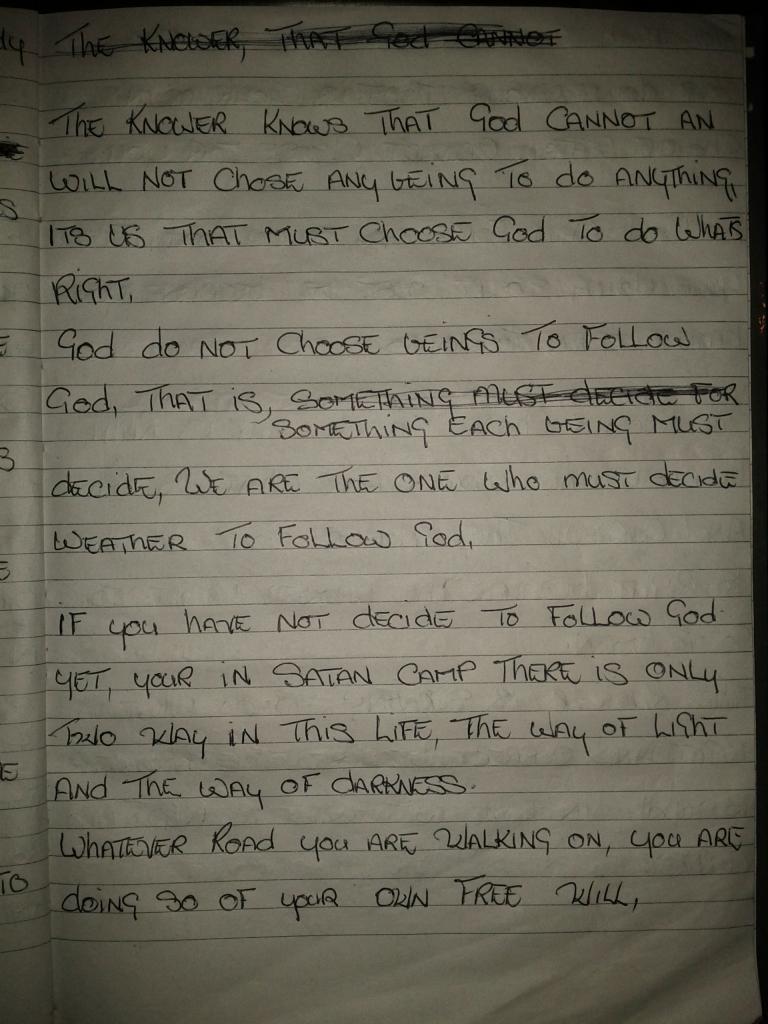 THE KNOWER, THAT God CANNOT
THE KNOWER KNOWS THAT God CANNOT AN
WILL NOT CHOSE ANY BEING TO do ANYTHING,
ITS US THAT MUST CHOOSE God TO do WHATS
RIGHT,
God do NOT CHOOSE BEINGS TO FOLLOW
God, THAT IS, SOMETHING MUST decide FOR
SOMETHING EACH BEING MUST
decIDE, WE ARE THE ONE Who MUST dECIDE
WEATHER TO FOLLOW God,
IF you HAVE NOT decIDE TO FOLLOW God
YET, YOUR IN SATAN CAMP THERE IS ONLY
TWO WAY IN THIS LIFE, THE WAY OF LIGHT
ANd THE WAY OF dARKNESS.
WHATEVER ROAd you ARE WALKING ON, you ARE
dOING SO OF YOUR OWN FREE WILL,